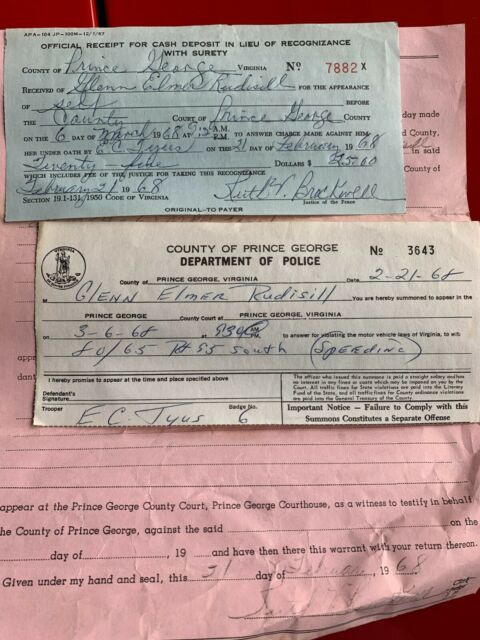 APA-104 JP-100M-12/1/67
OFFICIAL RECEIPT FOR CASH DEPOSIT IN LIEU OF RECOGNIZANCE
WITH SURETY
COUNTY OF Prince George VIRGINIA No 7882 X
RECEIVED OF Glenn Elmer Rudisill FOR THE APPEARANCE
OF self BEFORE
THE County COURT OF Prince George COUNTY
ON THE 6 DAY OF March 1968 AT 9:30 A.M. P.M. TO ANSWER CHARGE MADE AGAINST HIM
HER UNDER OATH BY E C Tyus ON THE 21 DAY OF February 1968
Twenty five DOLLARS $ 25.00
WHICH INCLUDES FEE OF THE JUSTICE FOR TAKING THIS RECOGNIZANCE
February 21 1968
SECTION 19.1-131, 1950 CODE OF VIRGINIA Justice of the Peace
ORIGINAL-TO PAYER
day made
d County,
in said
County of
VIRGINIA
COUNTY OF PRINCE GEORGE No 3643
DEPARTMENT OF POLICE
County of PRINCE GEORGE, VIRGINIA Date 2-21-68
M GLENN Elmer Rudisill You are hereby summoned to appear in the
PRINCE GEORGE County Court at PRINCE GEORGE, VIRGINIA
on 3-6-68 at 930 AM PM to answer for violating the motor vehicle laws of Virginia, to wit:
80/65 Rt 35 South (SPEEDING)
I hereby promise to appear at the time and place specified above
Defendant's
Signature
Trooper E.C. Tyus Badge No. 6
The officer who issued this summons is paid a straight salary and has
no interest in any fines or costs which may be imposed on you by the
Court. All traffic fines for State violations are paid into the Literary
Fund of the State, and all traffic fines for County ordinance violations
are paid into the General Treasury of the County.
Important Notice — Failure to Comply with this
Summons Constitutes a Separate Offense
app
dant
appear at the Prince George County Court, Prince George Courthouse, as a witness to testify in behalf
the County of Prince George, against the said on the
day of , 19 and have then there this warrant with your return thereon.
Given under my hand and seal, this 21 day of February, 1968